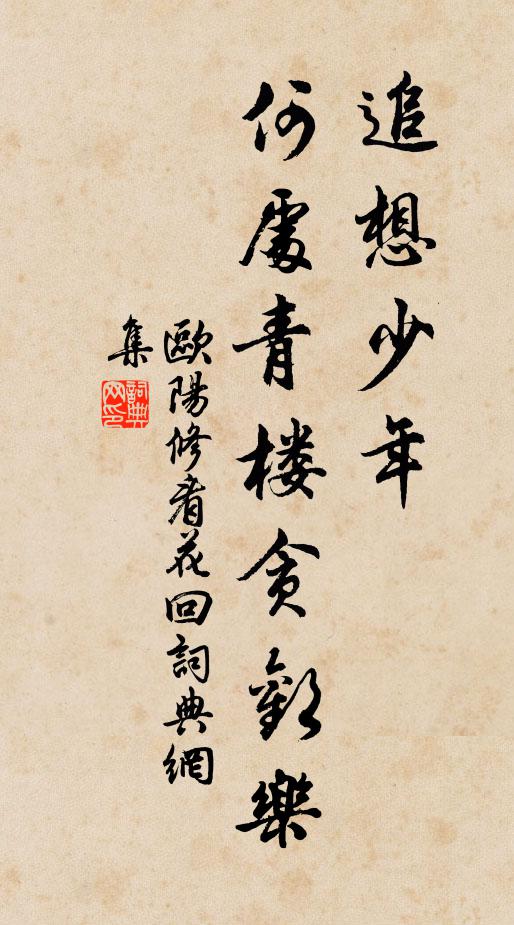 追想少年
何處青楼貪歡樂
歐陽修看花回詞典網
集
詞典
网印